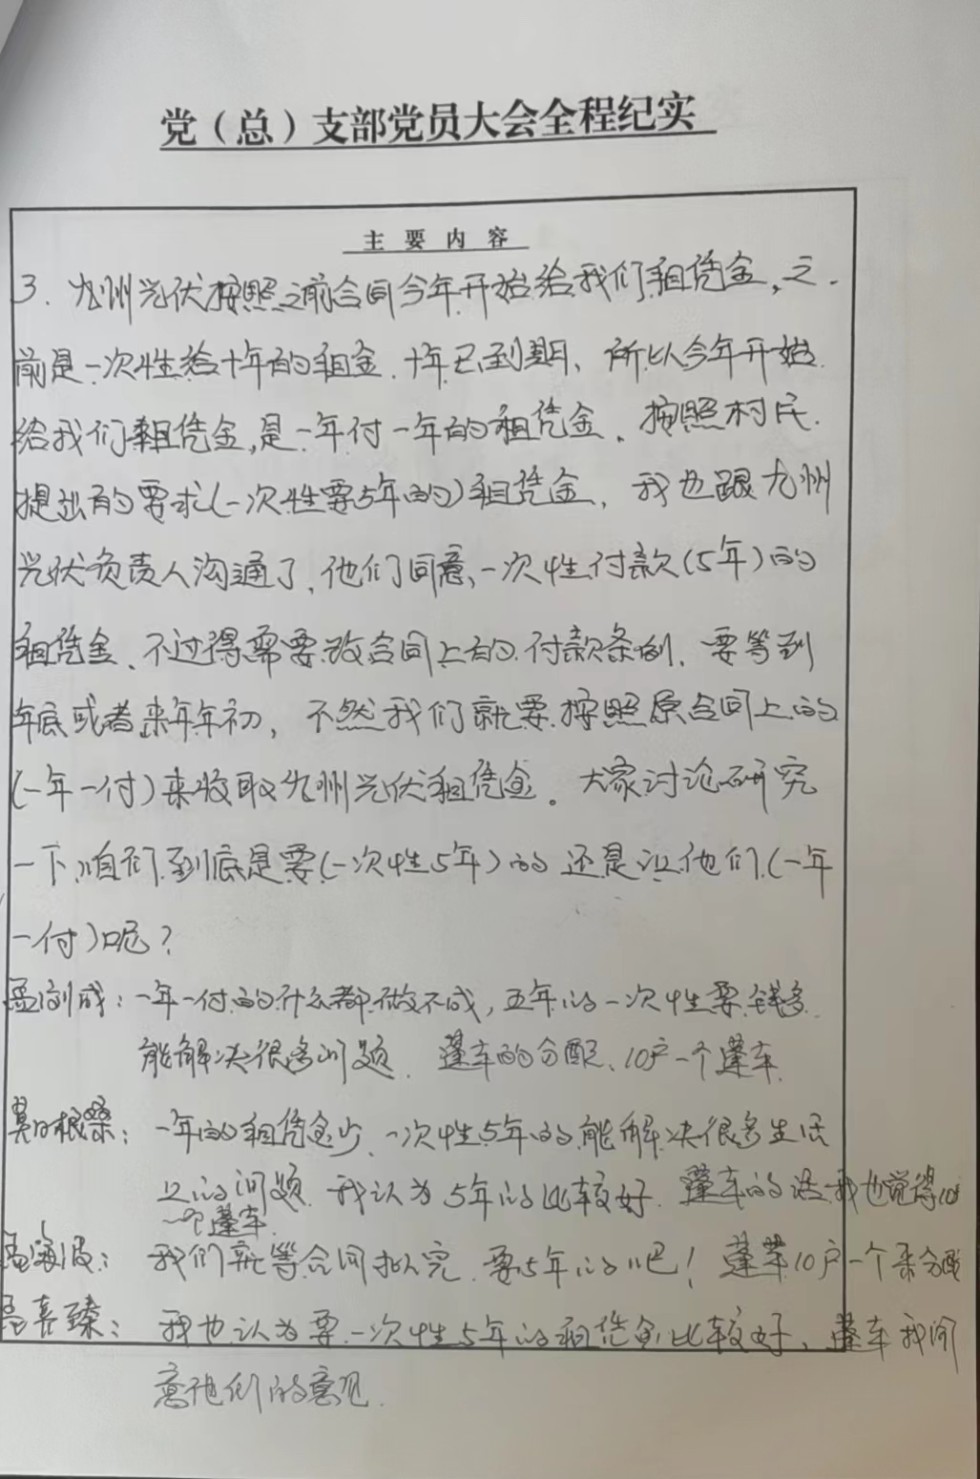 党（总）支部党员大会全程纪实
主要内容
3. 九州光伏按照之前合同今年开始给我们租凭金,之
前是一次性给十年的租金.十年已到期、所以今年开始
给我们租凭金,是一年付一年的租凭金。按照村民
提出的要求(一次性要5年的)租凭金, 我也跟九州
光伏负责人沟通了,他们同意,一次性付款(5年)的
租凭金、不过得需要改合同上的付款条例. 要等到
年底或者来年年初, 不然我们就要按照原合同上的
(一年一付)来收取九州光伏租凭金。大家讨论研究
一下,咱们到底是要(一次性5年)的还是让他们(一年
一付)呢?
成: 一年一付的什么都做不成, 五年的一次性要钱多
能解决很多问题. 蓬车的分配、10户一个蓬车.
莫日根桑: 一年的租凭金少、一次性5年的能解决很多生活
上的问题. 我认为5年的比较好. 蓬车的话我也觉得10户
一个蓬车.
孟海波: 我们就等合同拟完. 要5年的吧! 蓬车10户一个来分配
喜臻: 我也认为要一次性5年的租凭金比较好、蓬车我同
意他们的意见.